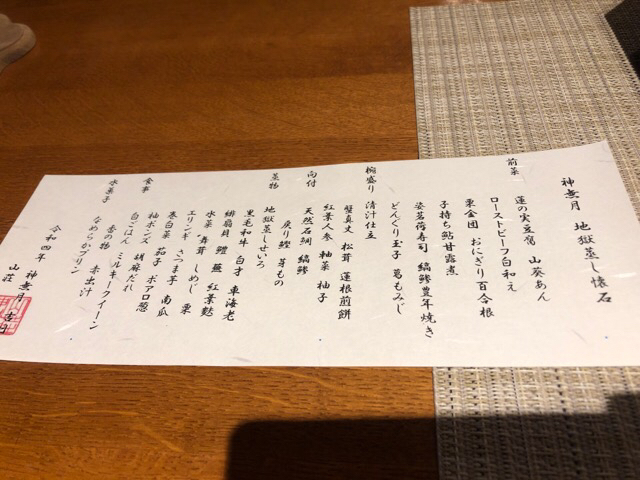 神無月 地獄蒸し懐石
前菜
蓮の実豆腐 山葵あん
ローストビーフ白和え
栗金団 おにぎり百合根
子持ち鮎甘露煮
姿茗荷寿司 縞鯵豊年焼き
どんぐり玉子 葛もみじ
椀盛り 清汁仕立
蟹真丈 松茸 蓮根煎餅
紅葉人参 軸菜 柚子
向付
天然石鯛 縞鯵
戻り鰹 芽もの
蒸物 地獄蒸しせいろ
黒毛和牛 白才 車海老
緋扇貝 鱧 蕪 紅葉麩
水菜 舞茸 しめじ 栗
エリンギ さつま芋 南瓜
巻白菜 茄子 ポアロ葱
柚ポンズ 胡麻だれ
食事 白ごはん ミルキークイーン
香の物 赤出汁
水菓子 なめらかプリン
令和四年 神無月
山荘 吉